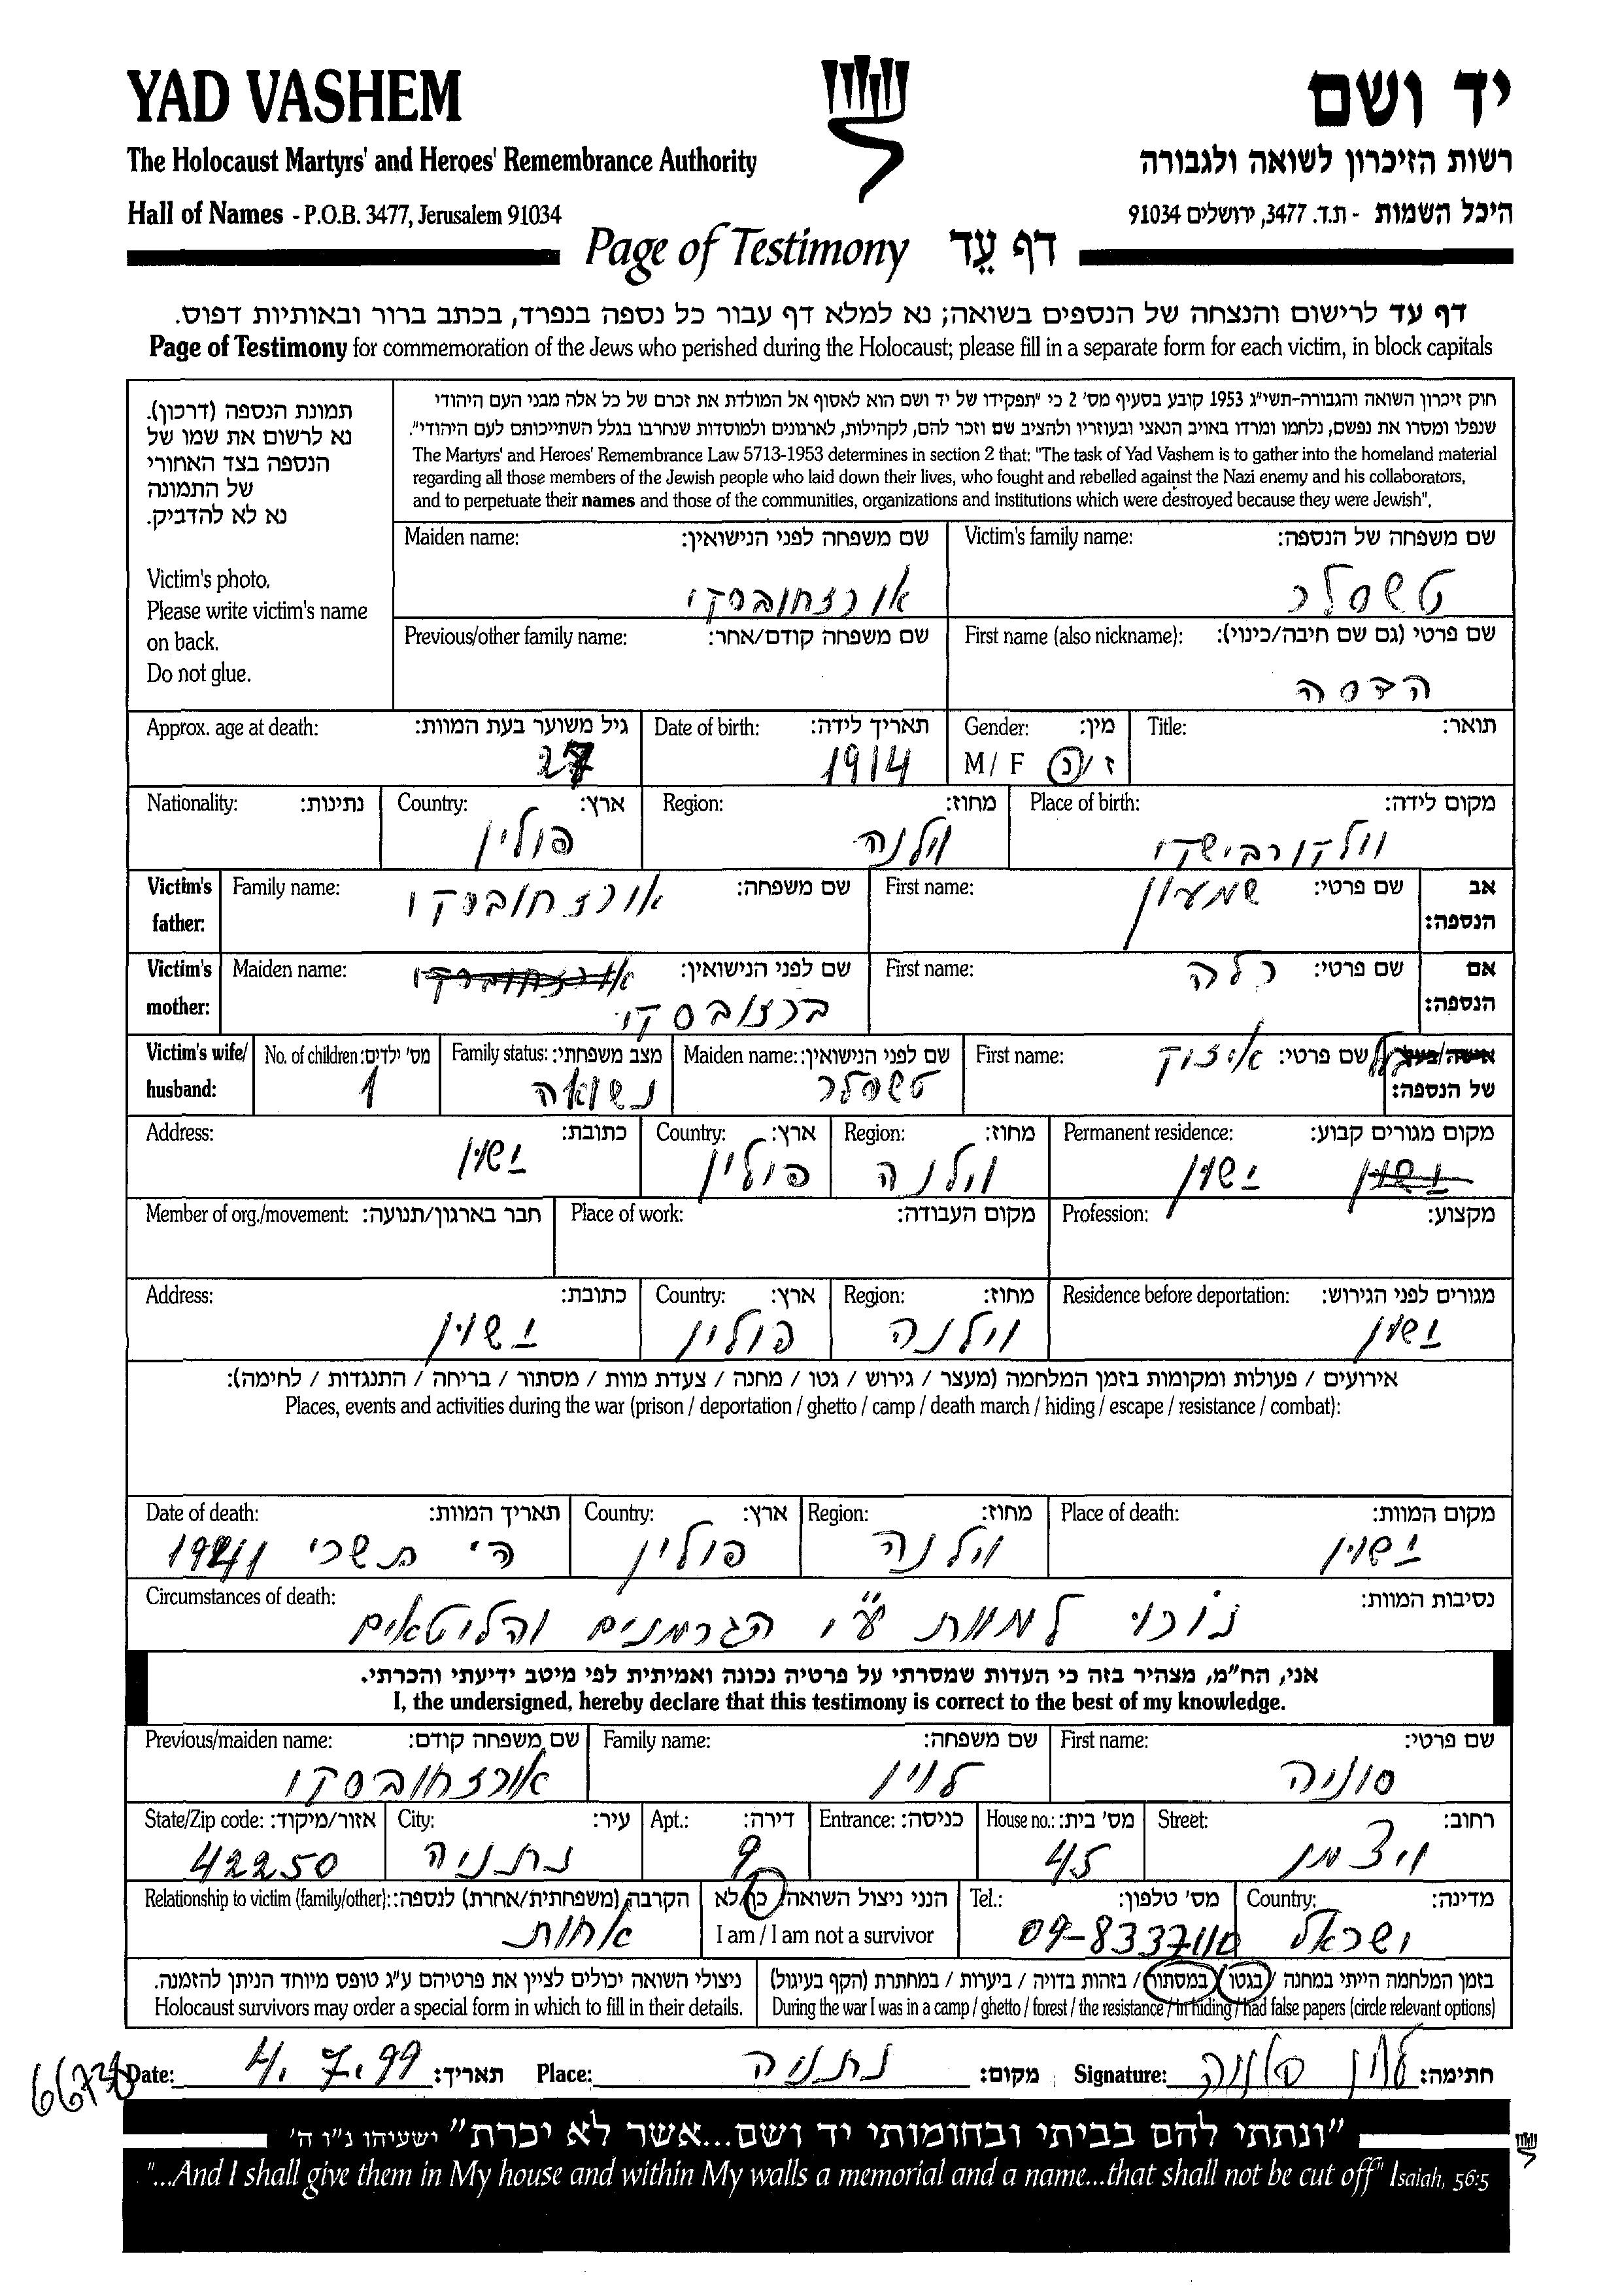 YAD VASHEM
יד ושם
The Holocaust Martyrs' and Heroes' Remembrance Authority
רשות הזיכרון לשואה ולגבורה
Hall of Names - P.O.B. 3477, Jerusalem 91034
היכל השמות - ת.ד. 3477, ירושלים 91034
Page of Testimony דף עֵד
דף עד לרישום והנצחה של הנספים בשואה; נא למלא דף עבור כל נספה בנפרד, בכתב ברור ובאותיות דפוס.
Page of Testimony for commemoration of the Jews who perished during the Holocaust; please fill in a separate form for each victim, in block capitals
תמונת הנספה (דרכון).
נא לרשום את שמו של
הנספה בצד האחורי
של התמונה
נא לא להדביק.
Victim's photo.
Please write victim's name
on back.
Do not glue.
חוק זיכרון השואה והגבורה-תשי"ג 1953 קובע בסעיף מס' 2 כי "תפקידו של יד ושם הוא לאסוף אל המולדת את זכרם של כל אלה מבני העם היהודי
שנפלו ומסרו את נפשם, נלחמו ומרדו באויב הנאצי ובעוזריו ולהציב שם וזכר להם, לקהילות, לארגונים ולמוסדות שנחרבו בגלל השתייכותם לעם היהודי".
The Martyrs' and Heroes' Remembrance Law 5713-1953 determines in section 2 that: "The task of Yad Vashem is to gather into the homeland material
regarding all those members of the Jewish people who laid down their lives, who fought and rebelled against the Nazi enemy and his collaborators,
and to perpetuate their names and those of the communities, organizations and institutions which were destroyed because they were Jewish".
Victim's family name: שם משפחה של הנספה:
טשסלר
Maiden name: שם משפחה לפני הנישואין:
אורזחובסקי
First name (also nickname): שם פרטי (גם שם חיבה/כינוי):
הדסה
Previous/other family name: שם משפחה קודם/אחר:
Title: תואר:
Gender: מין:
M / F ז / נ
Date of birth: תאריך לידה:
1914
Approx. age at death: גיל משוער בעת המוות:
27
Place of birth: מקום לידה:
וולקורבישקי
Region: מחוז:
וילנה
Country: ארץ:
פולין
Nationality: נתינות:
Victim's father: אב הנספה:
First name: שם פרטי:
שמעון
Family name: שם משפחה:
אורזחובסקי
Victim's mother: אם הנספה:
First name: שם פרטי:
רלה
Maiden name: שם לפני הנישואין:
ברזובסקי
Victim's wife/ husband: אישה/בעל של הנספה:
First name: שם פרטי:
איזוק
Maiden name: שם לפני הנישואין:
טשסלר
Family status: מצב משפחתי:
נשואה
No. of children: מס' ילדים:
1
Permanent residence: מקום מגורים קבוע:
ישוין
Region: מחוז:
וילנה
Country: ארץ:
פולין
Address: כתובת:
ישוין
Profession: מקצוע:
Place of work: מקום העבודה:
Member of org./movement: חבר בארגון/תנועה:
Residence before deportation: מגורים לפני הגירוש:
ישוין
Region: מחוז:
וילנה
Country: ארץ:
פולין
Address: כתובת:
ישוין
אירועים / פעולות ומקומות בזמן המלחמה (מעצר / גירוש / גטו / מחנה / צעדת מוות / מסתור / בריחה / התנגדות / לחימה):
Places, events and activities during the war (prison / deportation / ghetto / camp / death march / hiding / escape / resistance / combat):
Place of death: מקום המוות:
ישוין
Region: מחוז:
וילנה
Country: ארץ:
פולין
Date of death: תאריך המוות:
ה' תשרי 1941
Circumstances of death: נסיבות המוות:
נורו למוות ע"י הגרמנים והליטאים
אני, הח"מ, מצהיר בזה כי העדות שמסרתי על פרטיה נכונה ואמיתית לפי מיטב ידיעתי והכרתי.
I, the undersigned, hereby declare that this testimony is correct to the best of my knowledge.
First name: שם פרטי:
סוניה
Family name: שם משפחה:
לוין
Previous/maiden name: שם משפחה קודם:
אורזחובסקי
Street: רחוב:
ויצמן
House no.: מס' בית:
45
Entrance: כניסה:
Apt.: דירה:
9
City: עיר:
נתניה
State/Zip code: אזור/מיקוד:
42250
Country: מדינה:
ישראל
Tel.: מס' טלפון:
הנני ניצול השואה: כן/לא
I am / I am not a survivor
Relationship to victim (family/other): הקרבה (משפחתית/אחרת) לנספה:
אחות
בזמן המלחמה הייתי במחנה / בגטו / במסתור / בזהות בדויה / ביערות / במחתרת (הקף בעיגול)
During the war I was in a camp / ghetto / forest / the resistance / in hiding / had false papers (circle relevant options)
ניצולי השואה יכולים לציין את פרטיהם ע"ג טופס מיוחד הניתן להזמנה.
Holocaust survivors may order a special form in which to fill in their details.
Date: 4.7.99 תאריך: Place: נתניה מקום: Signature: לוין סוניה חתימה:
"ונתתי להם בביתי ובחומותי יד ושם...אשר לא יכרת" ישעיהו נ"ו ה'
"...And I shall give them in My house and within My walls a memorial and a name...that shall not be cut off" Isaiah, 56:5